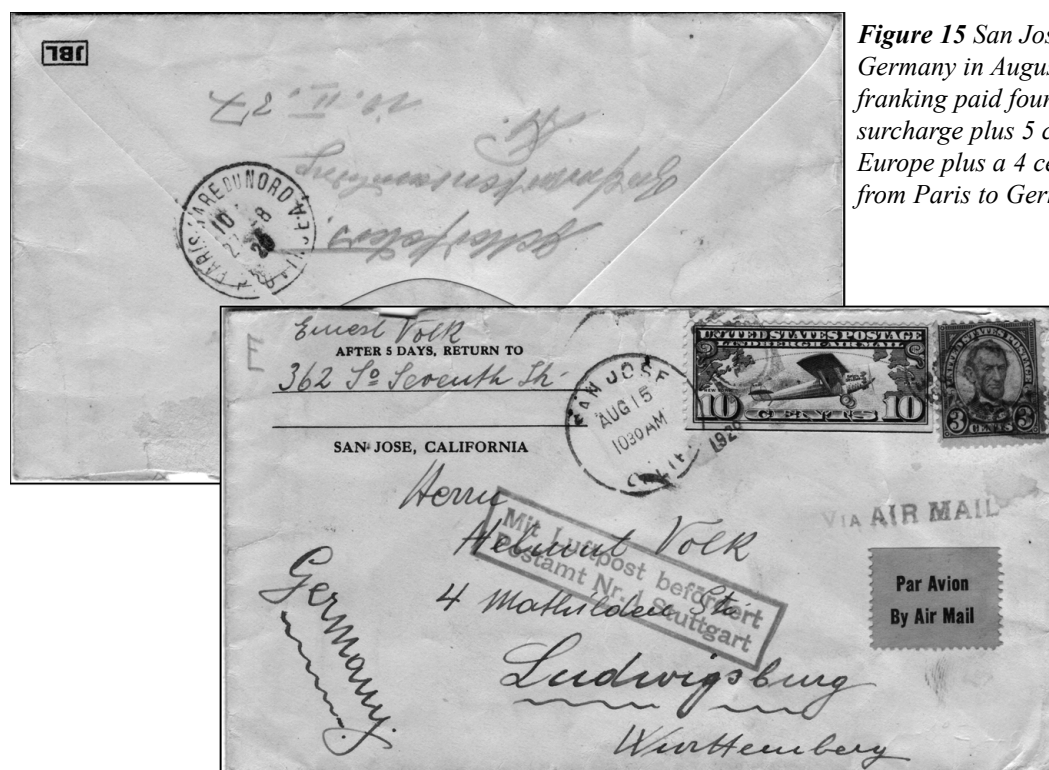 Figure 15 San Jos
Germany in Augus
franking paid four
surcharge plus 5 c
Europe plus a 4 ce
from Paris to Ger
JBL
10. II. 37
PARIS GARE DU NORD
10
Ernest Volk
AFTER 5 DAYS, RETURN TO
362 So Seventh Str.
SAN JOSE, CALIFORNIA
SAN JOSE
AUG 15
1030 AM
CALIF.
1929
UNITED STATES POSTAGE
LINDBERGH AIR MAIL
10 CENTS 10
UNITED STATES POSTAGE
3 CENTS 3
VIA AIR MAIL
Par Avion
By Air Mail
Mit Luftpost befördert
Postamt Nr. 1 Stuttgart
Herrn
Helmut Volk
4 Mathilden Str.
Ludwigsburg
Württemberg
Germany.